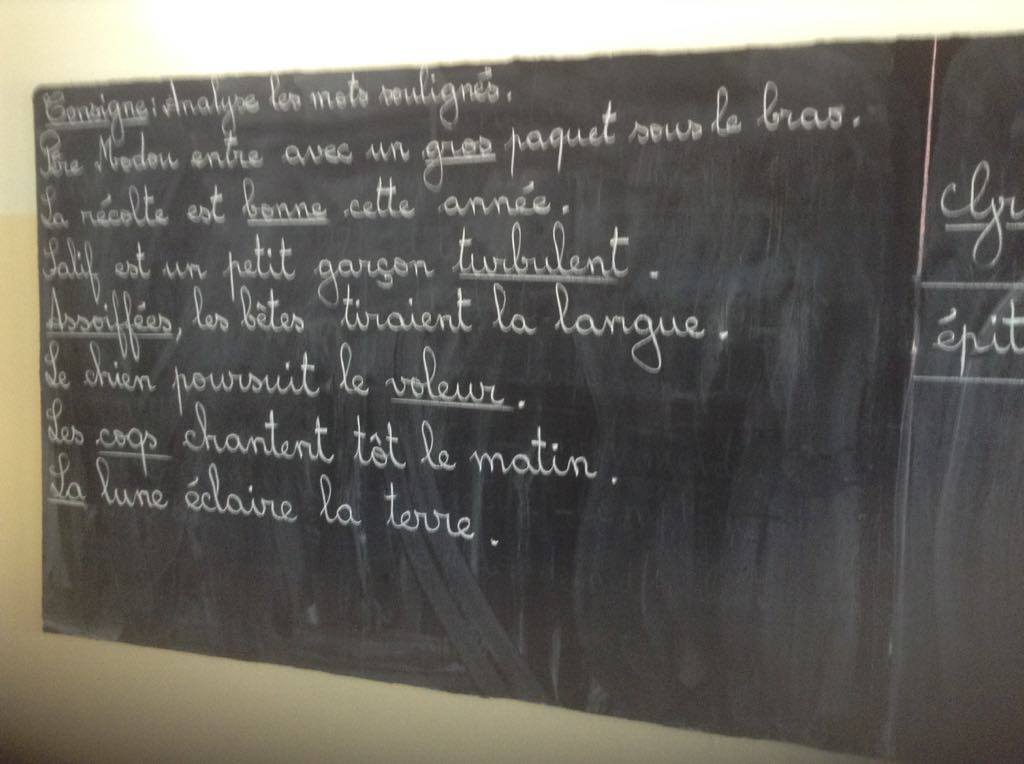 Consigne : Analyse les mots soulignés.
Père Modou entre avec un gros paquet sous le bras.
La récolte est bonne cette année.
Salif est un petit garçon turbulent.
Assoiffées, les bêtes tiraient la langue.
Le chien poursuit le voleur.
Les coqs chantent tôt le matin.
La lune éclaire la terre.
épit